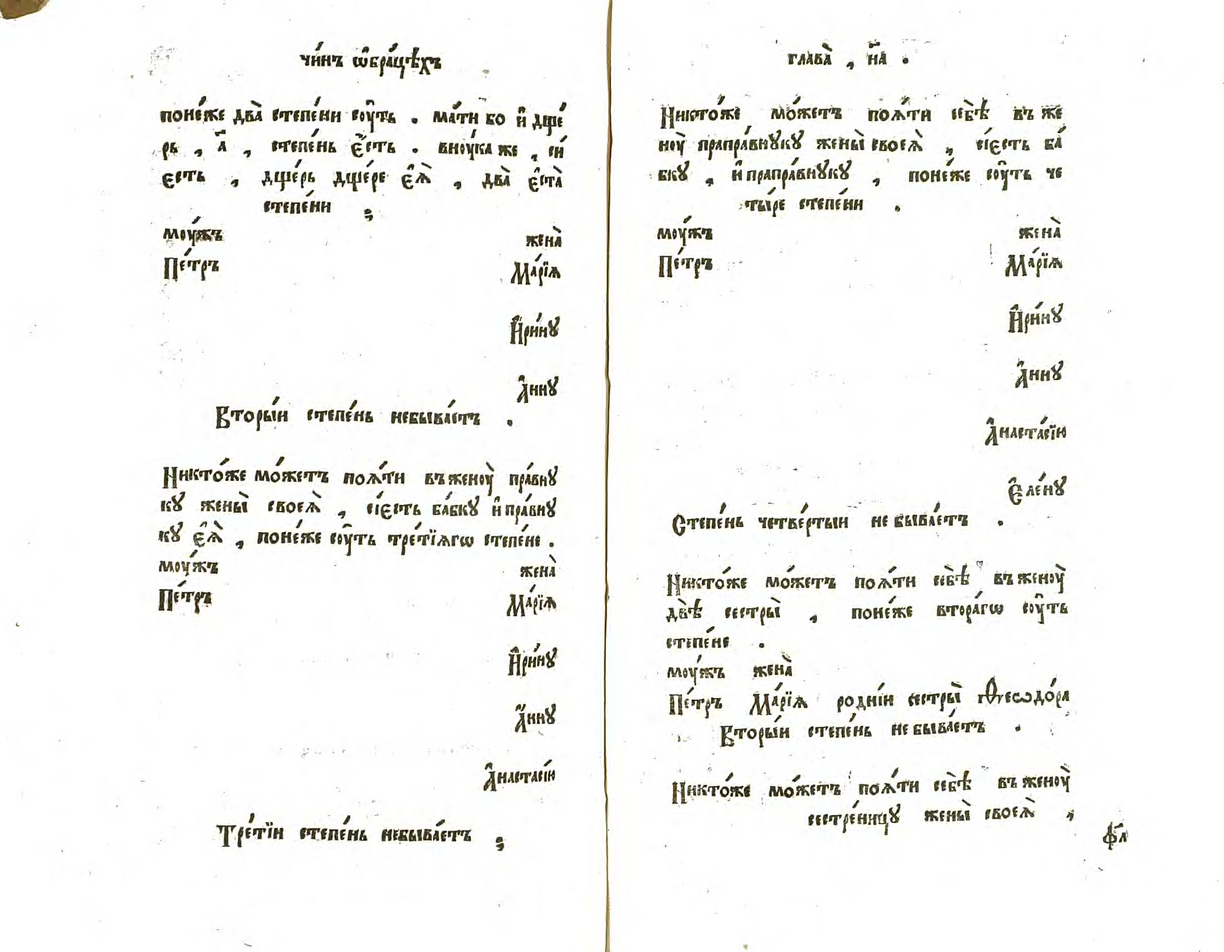 чи́нъ ѡ҆бра́цѣхъ
поне́же два̀ степе́ни сꙋ́ть . ма́ти бо и҆ дще́
рь , а҃ , степе́нь є҆́сть . внꙋ́ка же , сі́
є҆сть , дще́рь дще́ре є҆ѧ̀ , два̀ є҆ста̀
степе́ни ;
моу́жъ жена̀
Пе́тръ Марі́ѧ
И҆ри́нꙋ
А҆́ннꙋ
Вторы́и степе́нь небыва́етъ .
Никто́же мо́жетъ поѧ́ти въженоу̀ пра́внꙋ
кꙋ жены̀ своеѧ̀ , сі́єсть ба́бкꙋ и҆ пра́внꙋ
кꙋ є҆ѧ̀ , поне́же соу́ть тре́тїѧгѡ степе́не .
моу́жъ жена̀
Пе́тръ Марі́ѧ
И҆ри́нꙋ
А҆́ннꙋ
А҆наста́сїи
Тре́тїи степе́нь небыва́етъ ;
глава̀ , н҃а .
Никто́же мо́жетъ поѧ́ти себѣ̀ въ же
ноу̀ праправнꙋ́кꙋ жены̀ своеѧ̀ , сі́єсть ба́
бкꙋ , и҆ прапра́внꙋкꙋ , поне́же соу́ть че
ты́ре степе́ни .
моу́жъ жена̀
Пе́тръ Марі́ѧ
И҆ри́нꙋ
А҆́ннꙋ
А҆наста́сїю
Є҆ле́нꙋ
Степе́нь четве́ртыи не быва́етъ .
Никто́же мо́жетъ поѧ́ти себѣ̀ въженоу̀
двѣ̀ сестры̀ , поне́же втора́гѡ соу́ть
степе́не .
моу́жъ жена̀
Пе́тръ Марі́ѧ родні́и сестры̀ Ѳеѡдо́ра
Вторы́и степе́нь не быва́етъ .
Никто́же мо́жетъ поѧ́ти себѣ̀ въ женоу̀
сестре́ницꙋ жены̀ своеѧ̀ ,